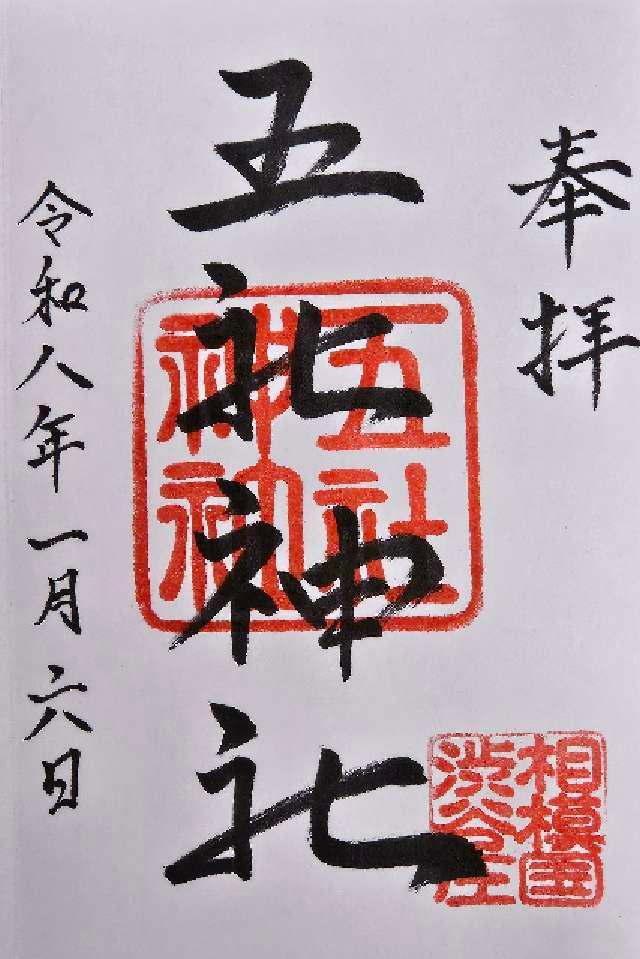 奉拝
五社神社
五社
神社
相模国
渋谷庄
令和八年一月六日